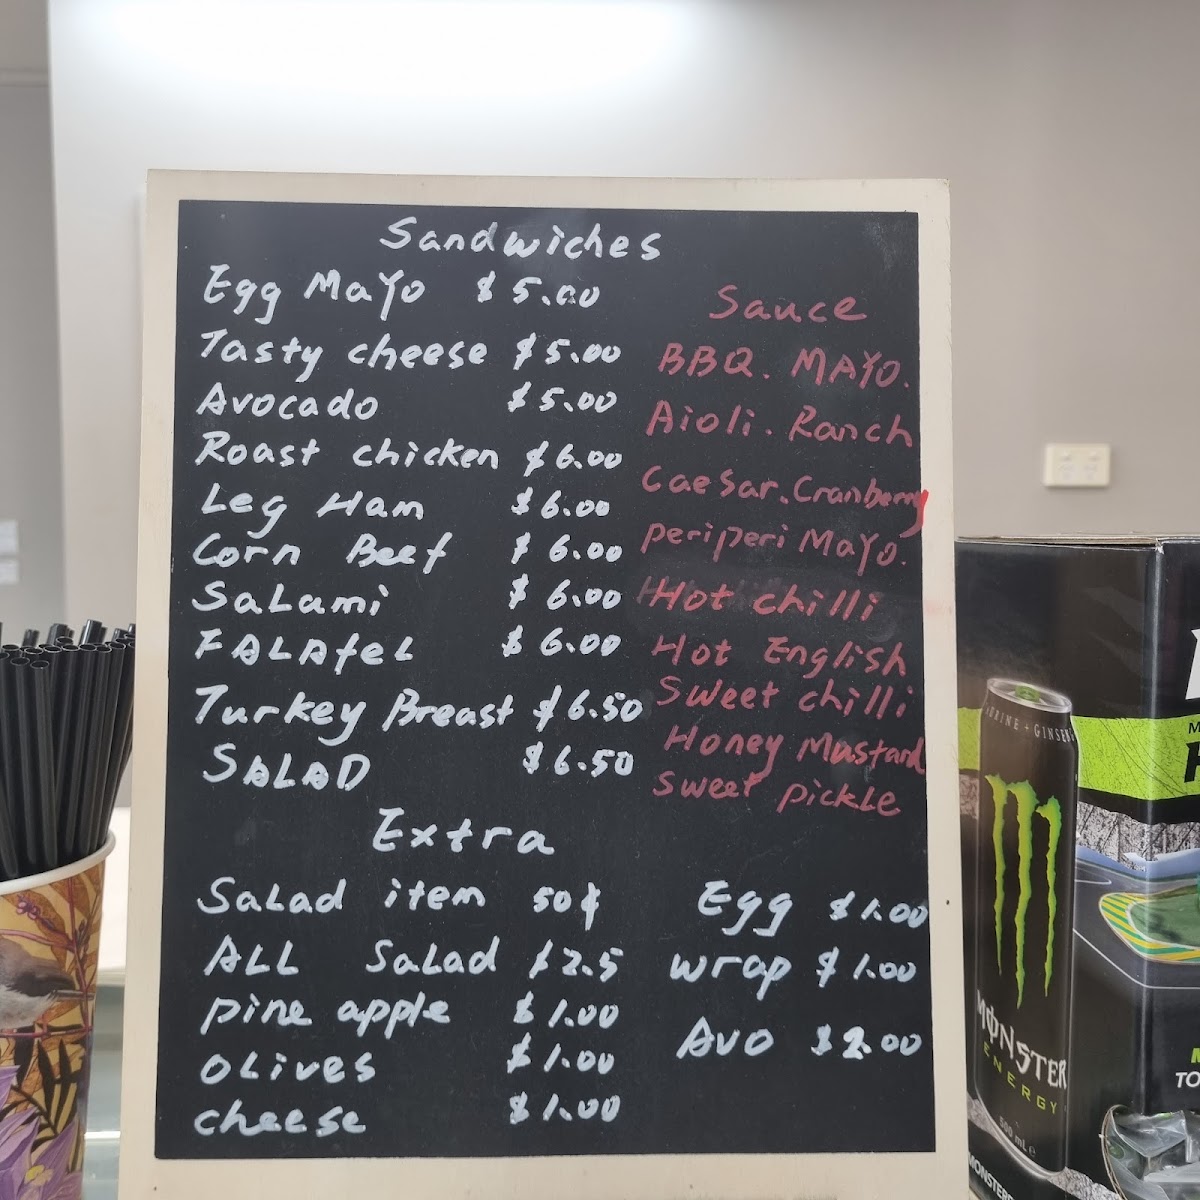 Sandwiches
Egg Mayo $5.00
Tasty cheese $5.00
Avocado $5.00
Roast chicken $6.00
Leg Ham $6.00
Corn Beef $6.00
SaLami $6.00
FALAfeL $6.00
Turkey Breast $6.50
SALAD $6.50
Sauce
BBQ. MAYO.
Aioli. Ranch
Caesar. Cranberry
periperi Mayo.
Hot chilli
Hot English
Sweet chilli
Honey Mustard
sweet pickLe
Extra
SaLad item 50¢
ALL SaLad $2.5
pine apple $1.00
oLives $1.00
cheese $1.00
Egg $1.00
wrap $1.00
Avo $2.00
MONSTER
ENERGY
500 mL e
TO